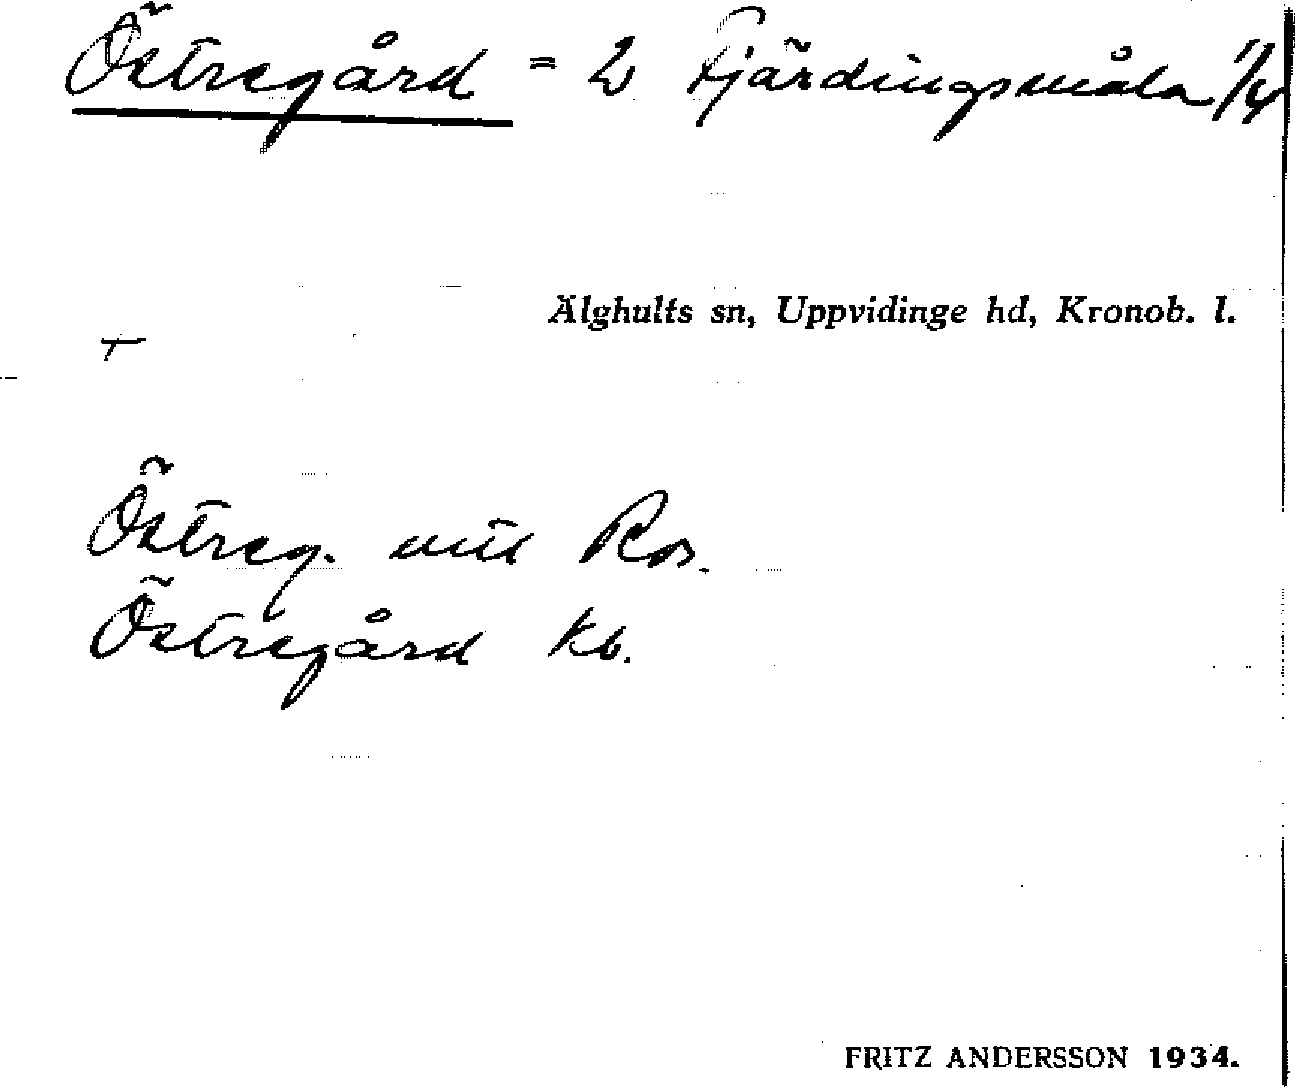 Östregård = 2 Fjärdingsmåla 1/4
Älghults sn, Uppvidinge hd, Kronob. l.
Östreg. utü Ros.
Östregård kb.
FRITZ ANDERSSON 1934.